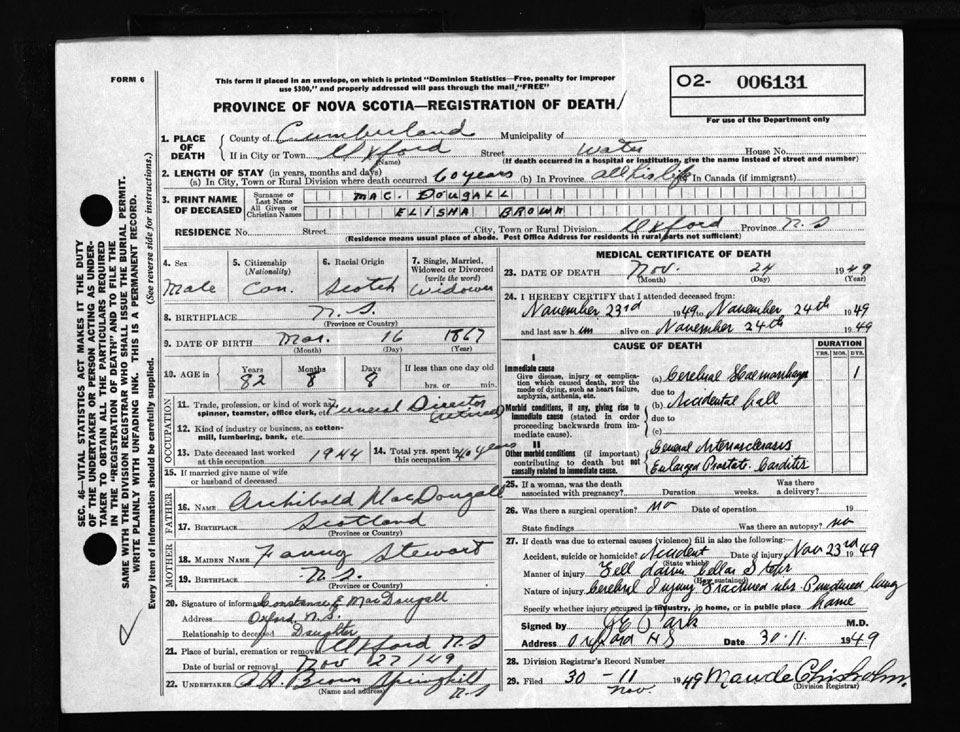 FORM 6
This form if placed in an envelope, on which is printed "Dominion Statistics—Free, penalty for improper
use $300," and properly addressed will pass through the mail "FREE"
O2- 006131
For use of the Department only
PROVINCE OF NOVA SCOTIA—REGISTRATION OF DEATH
SEC. 46—VITAL STATISTICS ACT MAKES IT THE DUTY
OF THE UNDERTAKER OR PERSON ACTING AS UNDER-
TAKER TO OBTAIN ALL THE PARTICULARS REQUIRED
IN THE "REGISTRATION OF DEATH" AND TO FILE THE
SAME WITH THE DIVISION REGISTRAR WHO SHALL ISSUE THE BURIAL PERMIT.
WRITE PLAINLY WITH UNFADING INK. THIS IS A PERMANENT RECORD.
Every item of information should be carefully supplied. (See reverse side for instructions.)
1. PLACE OF DEATH
County of Cumberland Municipality of
If in City or Town Oxford Street Water House No.
(Name) (If death occurred in a hospital or institution, give the name instead of street and number)
2. LENGTH OF STAY (in years, months and days)
(a) In City, Town or Rural Division where death occurred 60 years (b) In Province all his life In Canada (if immigrant)
3. PRINT NAME OF DECEASED
Surname or Last Name MAC. DOUGALL
All Given or Christian Names ELISHA BROWN
RESIDENCE No. Street City, Town or Rural Division Oxford Province N.S
(Residence means usual place of abode. Post Office Address for residents in rural parts not sufficient)
4. Sex
Male
5. Citizenship
(Nationality)
Can.
6. Racial Origin
Scotch
7. Single, Married,
Widowed or Divorced
(write the word)
Widower
8. BIRTHPLACE N.S.
(Province or Country)
9. DATE OF BIRTH Mar. 16 1867
(Month) (Day) (Year)
10. AGE in Years Months Days If less than one day old
82 8 8 hrs. or min.
OCCUPATION
11. Trade, profession, or kind of work as
spinner, teamster, office clerk, etc. Funeral Director
(retired)
12. Kind of industry or business, as cotton-
mill, lumbering, bank, etc.
13. Date deceased last worked
at this occupation 1944
14. Total yrs. spent in
this occupation 40 years
15. If married give name of wife
or husband of deceased
FATHER
16. Name Archibald MacDougall
17. Birthplace Scotland
(Province or Country)
MOTHER
18. Maiden Name Fanny Stewart
19. Birthplace N.S.
(Province or Country)
20. Signature of informant Constance E MacDougall
Address Oxford, N.S.
Relationship to deceased Daughter
21. Place of burial, cremation or removal Oxford N.S
Date of burial or removal Nov 27/49
22. Undertaker A.A. Brown Springhill
(Name and address) N.S
MEDICAL CERTIFICATE OF DEATH
23. DATE OF DEATH Nov. 24 1949
(Month) (Day) (Year)
24. I HEREBY CERTIFY that I attended deceased from:
November 23rd 1949 to November 24th 1949
and last saw him alive on November 24th 1949
CAUSE OF DEATH DURATION
YRS. MOS. DYS.
I
Immediate cause
Give disease, injury or compli-
cation which caused death, NOT the
mode of dying, such as heart failure,
asphyxia, asthenia, etc.
(a) Cerebral Haemorrhage 1
due to
Morbid conditions, if any, giving rise to
immediate cause (stated in order
proceeding backwards from im-
mediate cause)
(b) Accidental fall
due to
(c)
II
Other morbid conditions (if important)
contributing to death but not
causally related to immediate cause.
General Arteriosclerosis
Enlarged Prostate. Carditis
25. If a woman, was the death
associated with pregnancy? Duration weeks. Was there
a delivery?
26. Was there a surgical operation? no Date of operation 19
State findings Was there an autopsy? no
27. If death was due to external causes (violence) fill in also the following:
Accident, suicide or homicide? Accident Date of injury Nov 23rd 1949
(State which)
Manner of injury Fell down Cellar Steps
(How sustained)
Nature of injury Cerebral Injury Fractured ribs Punctured lung
Specify whether injury occurred in industry, in home, or in public place home
Signed by Park M.D.
Address Oxford NS Date 30.11 1949
28. Division Registrar's Record Number
29. Filed 30 - 11 1949 Maude Chisholm.
Nov. (Division Registrar)